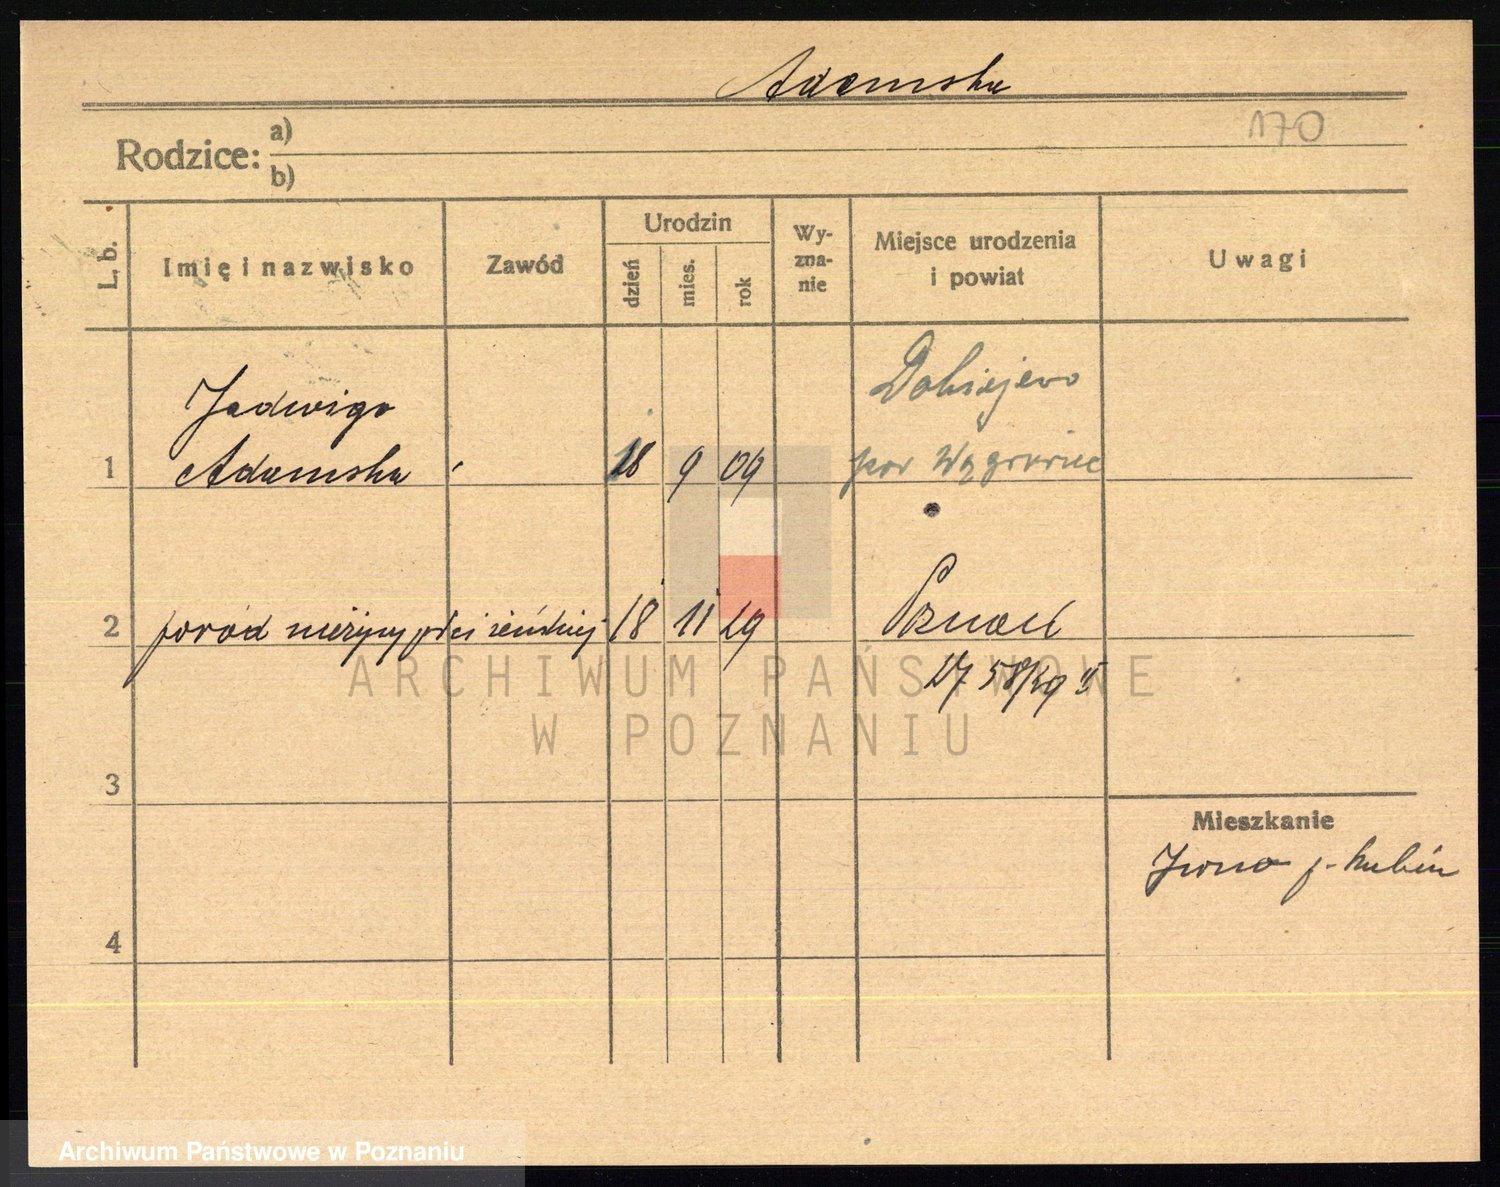 Adamska
170
Rodzice: a)
b)
L. b.
Imię i nazwisko
Zawód
Urodzin
dzień
mies.
rok
Wy-
zna-
nie
Miejsce urodzenia
i powiat
Uwagi
Jadwiga
Dobiejewo
1 Adamska 18 9 09 pow Wągrowiec
2 poród nieżywy płci żeńskiej 18 11 29 Poznań
58/29 II
ARCHIWUM PAŃSTWOWE
W POZNANIU
3
Mieszkanie
4
Archiwum Państwowe w Poznaniu